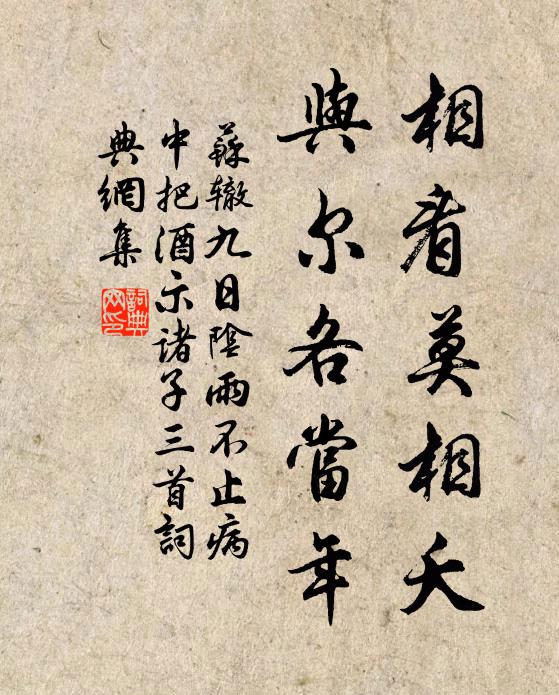 相看莫相夭
與尔各當年
蘇轍九日陰雨不止病
中把酒示諸子三首詞
典網集
詞典
网印